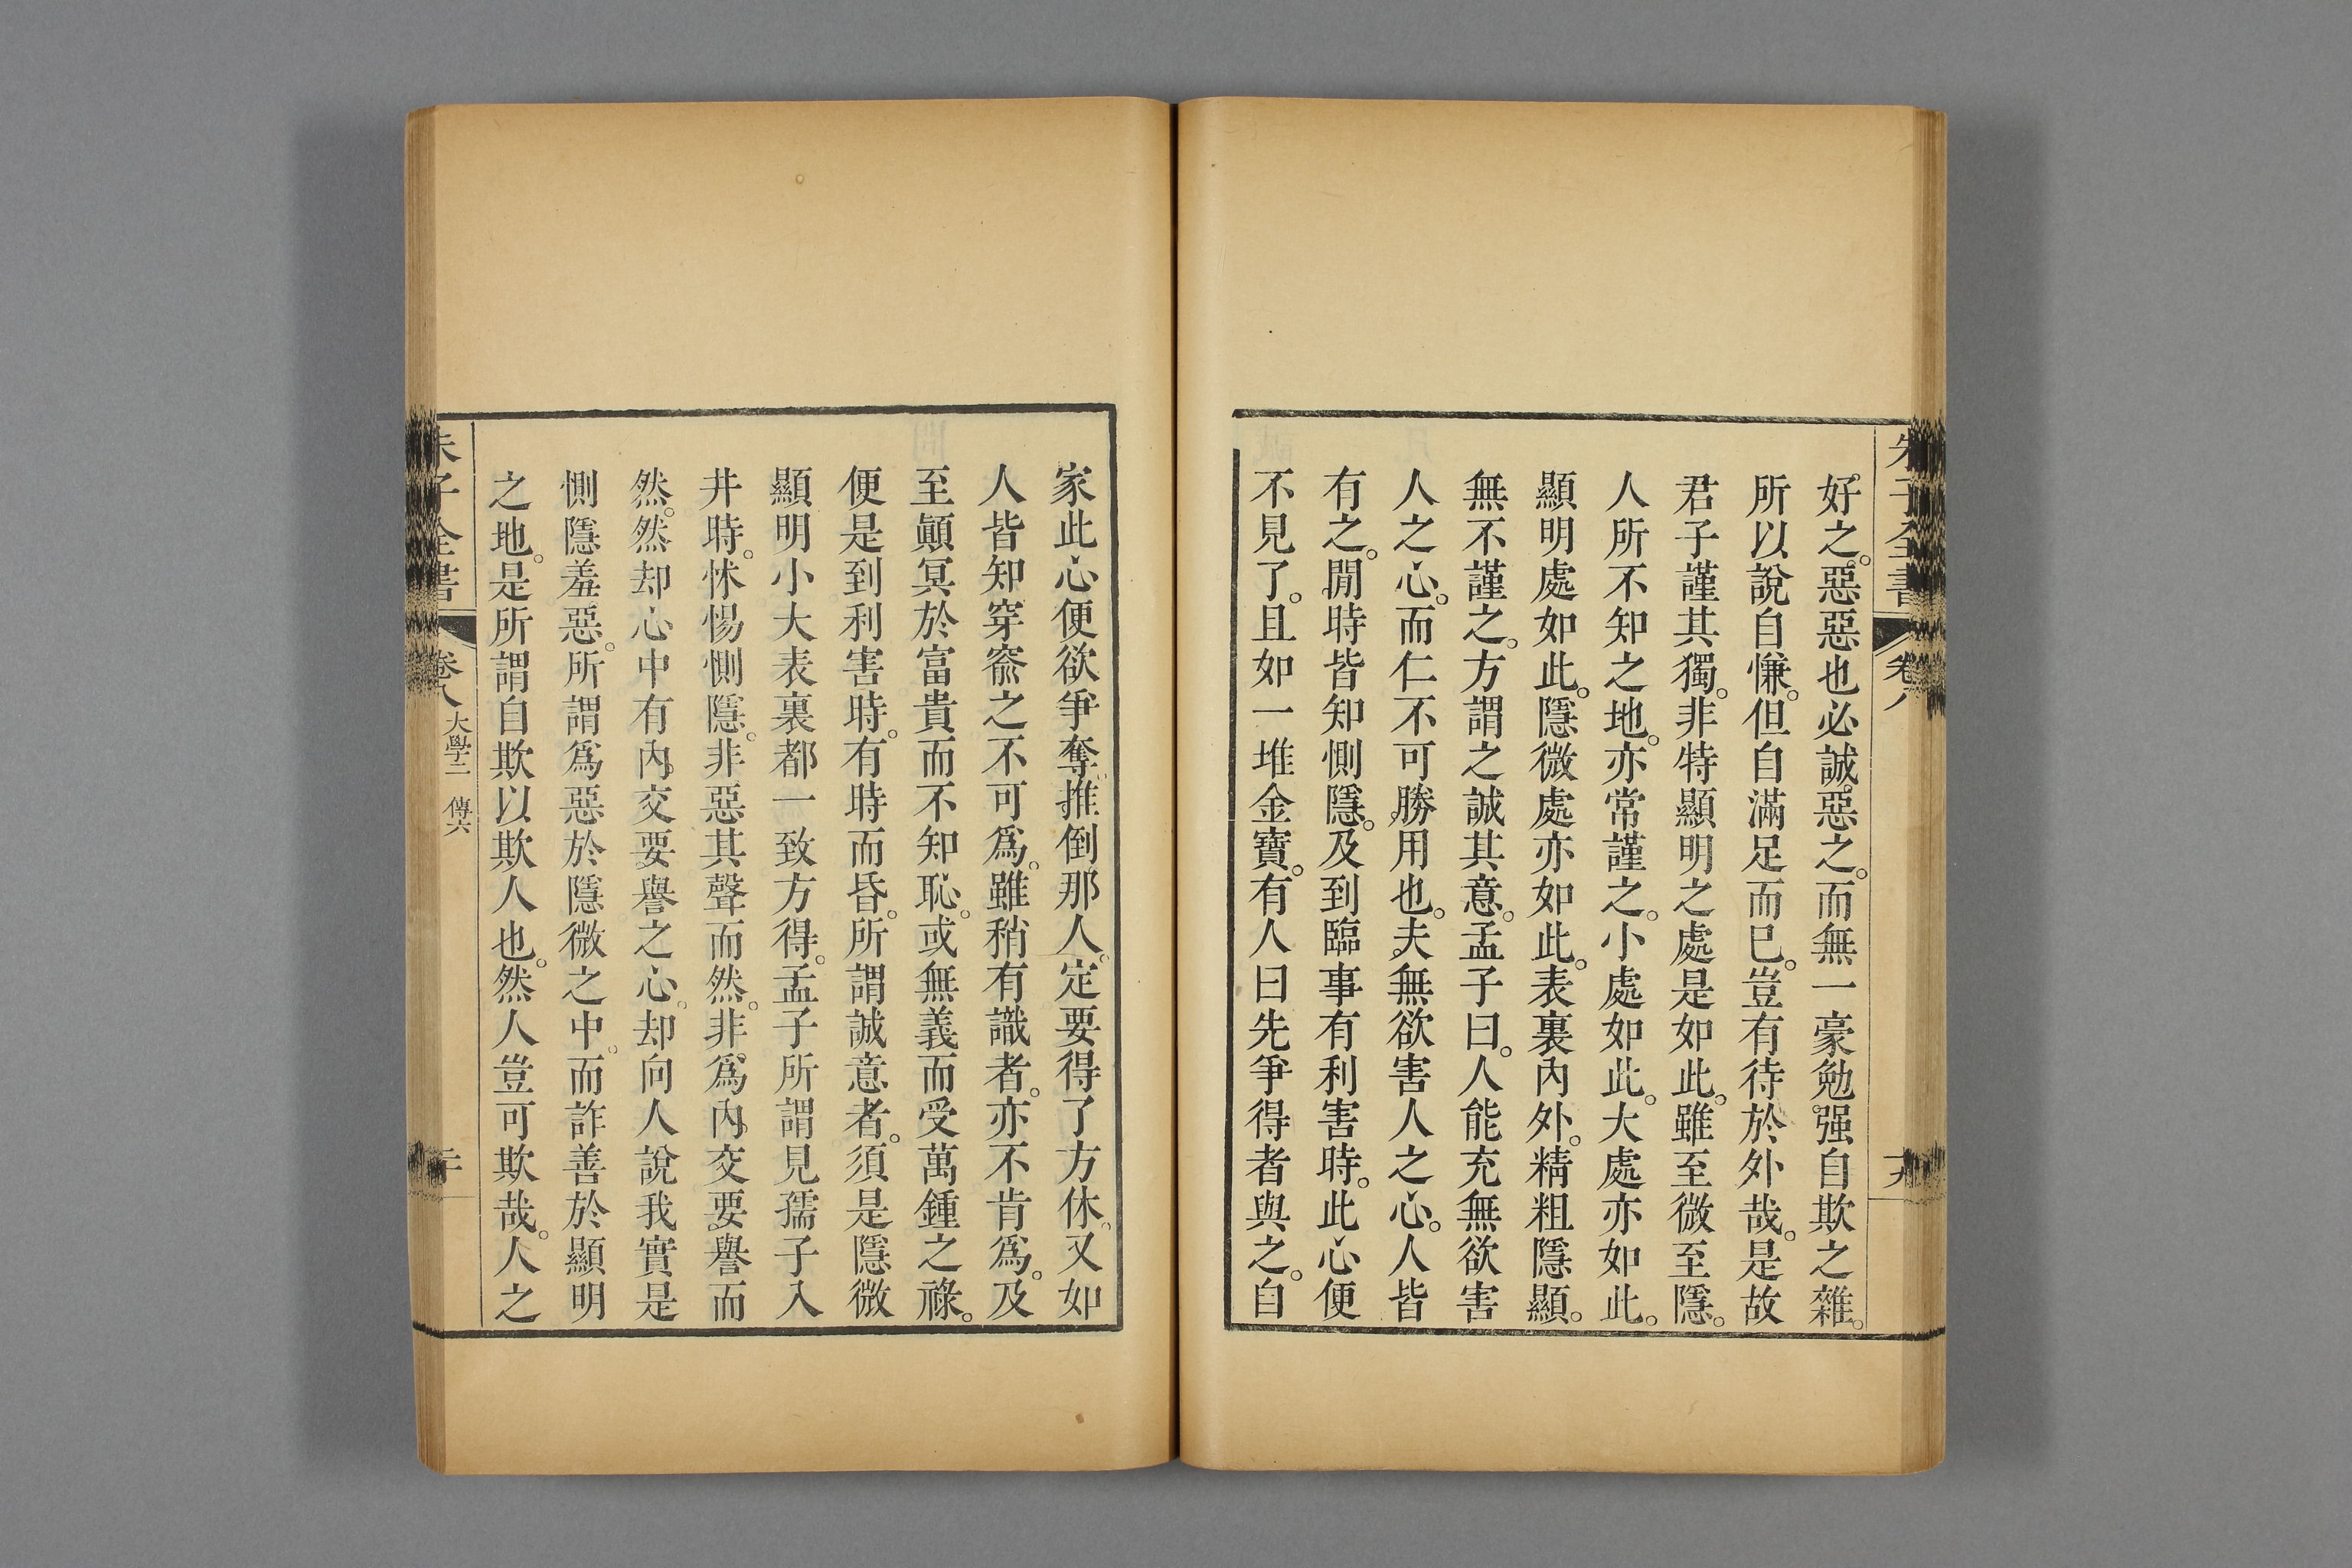 朱子全書 卷八 十九
好之。惡惡也必誠惡之。而無一豪勉强自欺之雜。
所以說自慊。但自滿足而已。豈有待於外哉。是故
君子謹其獨。非特顯明之處是如此。雖至微至隱。
人所不知之地。亦常謹之。小處如此。大處亦如此。
顯明處如此。隱微處亦如此。表裏內外。精粗隱顯。
無不謹之。方謂之誠其意。孟子曰。人能充無欲害
人之心。而仁不可勝用也。夫無欲害人之心。人皆
有之。閒時皆知惻隱。及到臨事有利害時。此心便
不見了。且如一堆金寶。有人曰先爭得者與之。自
家此心便欲爭奪推倒那人。定要得了方休。又如
人皆知穿窬之不可爲。雖稍有識者。亦不肯爲。及
至顚冥於富貴而不知恥。或無義而受萬鍾之祿。
便是到利害時。有時而昏。所謂誠意者。須是隱微
顯明小大表裏都一致方得。孟子所謂見孺子入
井時。怵惕惻隱。非惡其聲而然。非爲內交要譽而
然。然却心中有內交要譽之心。却向人說我實是
惻隱羞惡。所謂爲惡於隱微之中。而詐善於顯明
之地。是所謂自欺以欺人也。然人豈可欺哉。人之
朱子全書 卷八 大學二 傳六 二十